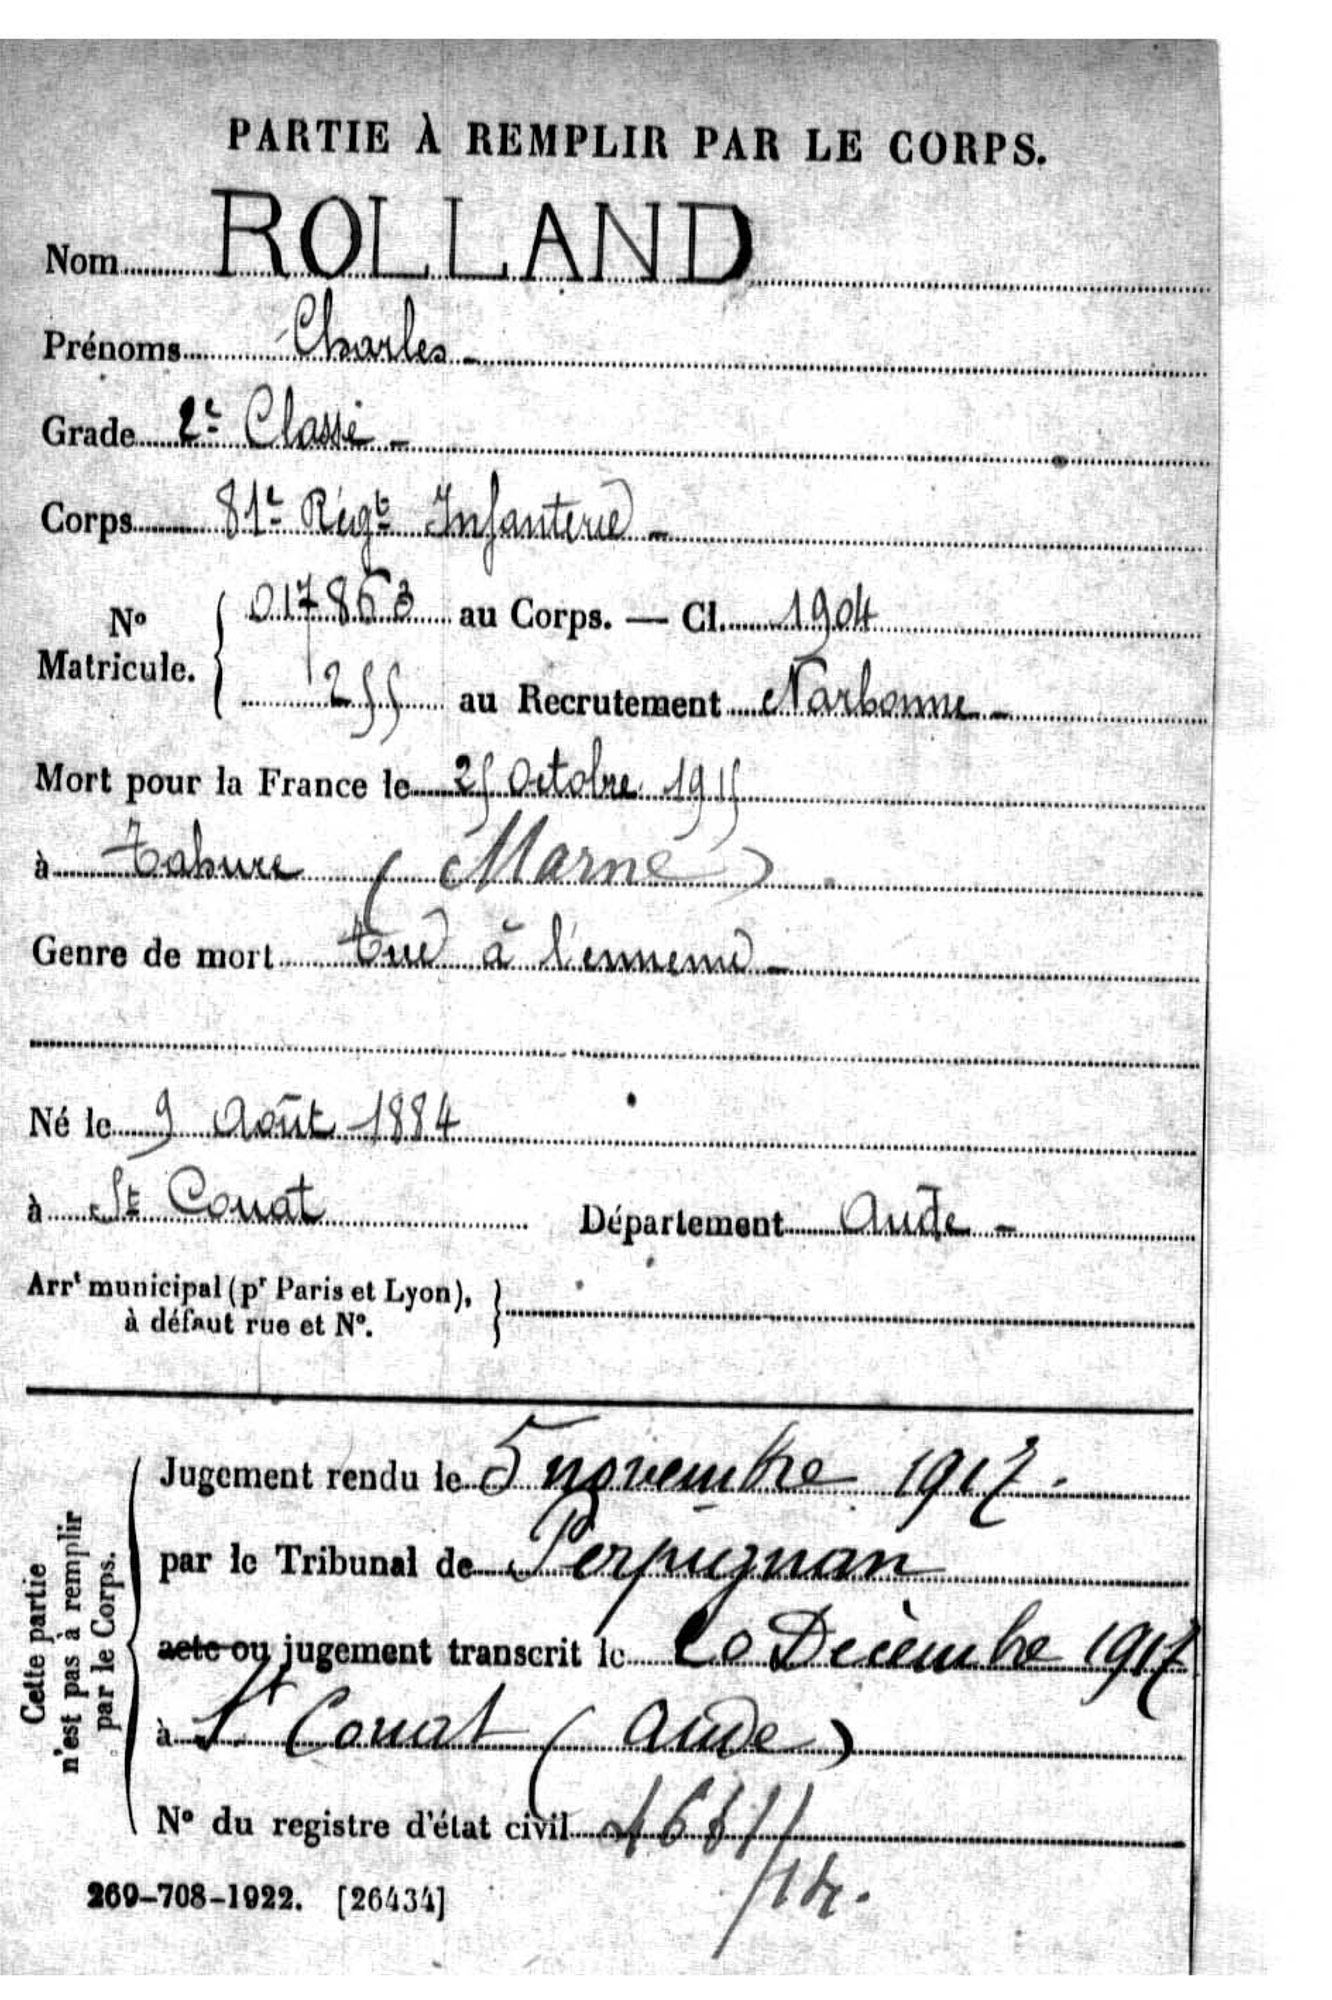 PARTIE À REMPLIR PAR LE CORPS.
Nom ROLLAND
Prénoms Charles -
Grade 2e Classe -
Corps 81e Régt Infanterie -
No Matricule. { 017863 au Corps. — Cl. 1904
255 au Recrutement Narbonne -
Mort pour la France le 25 Octobre 1915
à Tahure (Marne)
Genre de mort Tué à l'ennemi -
Né le 9 Août 1884
à St Couat Département Aude -
Arrt municipal (pr Paris et Lyon), }
à défaut rue et No.
Cette partie
n'est pas à remplir
par le Corps.
Jugement rendu le 5 novembre 1917.
par le Tribunal de Perpignan
acte ou jugement transcrit le 20 Décembre 1917
à St Couat (Aude)
No du registre d'état civil
269-708-1922. [26434]